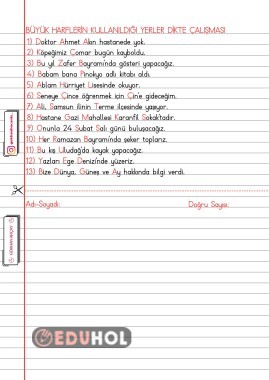 BÜYÜK HARFLERİN KULLANILDIĞI YERLER DİKTE ÇALIŞMASI
1) Doktor Ahmet Akın hastanede yok.
2) Köpeğimiz Comar bugün kayboldu.
3) Bu yıl Zafer Bayramı'nda gösteri yapacağız.
4) Babam bana Pinokyo adlı kitabı aldı.
5) Ablam Hürriyet Lisesinde okuyor.
6) Seneye Çince öğrenmek için Çin'e gideceğim.
7) Ali, Samsun ilinin Terme ilçesinde yaşıyor.
8) Hastane Gazi Mahallesi Karanfil Sokak'tadır.
9) Onunla 24 Şubat Salı günü buluşacağız.
10) Her Ramazan Bayramı'nda şeker toplarız.
11) Bu kış Uludağ'da kayak yapacağız.
12) Yazları Ege Denizi'nde yüzeriz.
13) Bize Dünya, Güneş ve Ay hakkında bilgi verdi.
Adı-Soyadı:
Doğru Sayısı:
EDUHOL